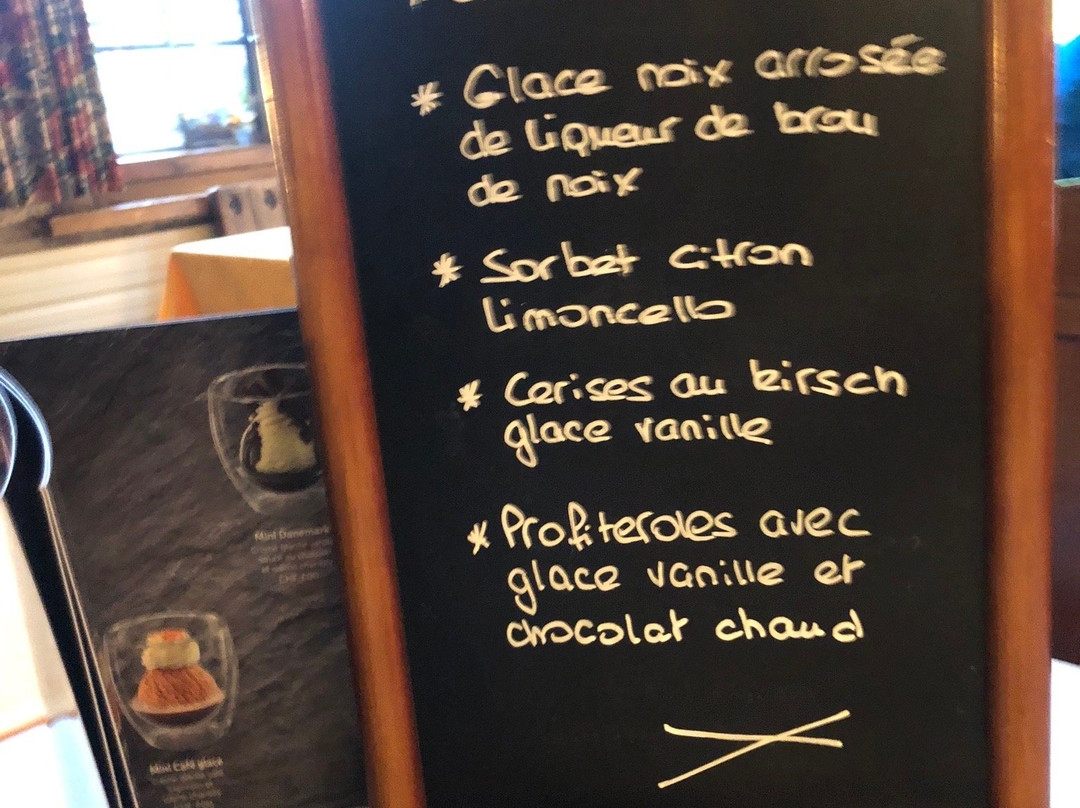 * Glace noix arrosée
de liqueur de brou
de noix
* Sorbet citron
limoncello
* Cerises au kirsch
glace vanille
* Profiteroles avec
glace vanille et
chocolat chaud
Mini Danemark
CHF
Mini Café glacé